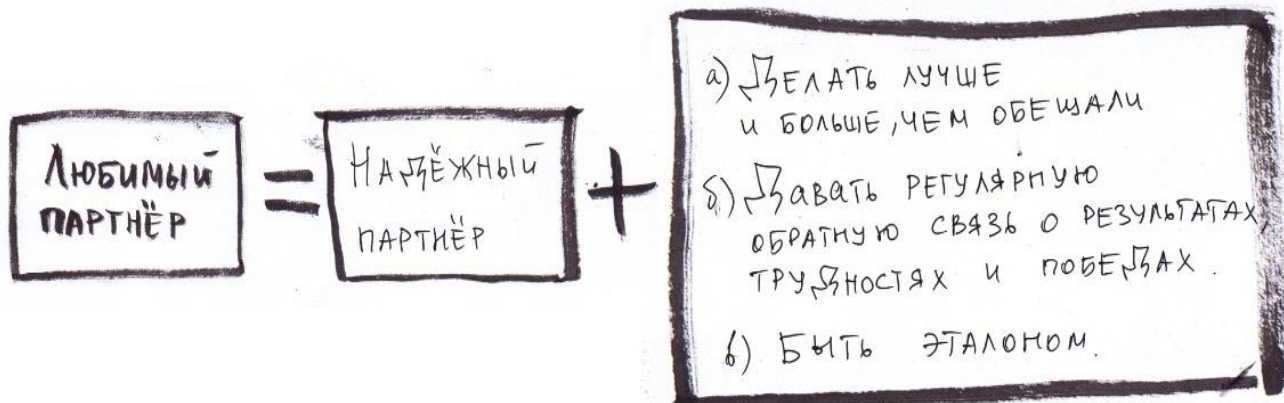 Любимый
партнёр
=
Надёжный
партнёр
+
а) Делать лучше
и больше, чем обещали
б) Давать регулярную
обратную связь о результатах,
трудностях и победах.
в) Быть эталоном.